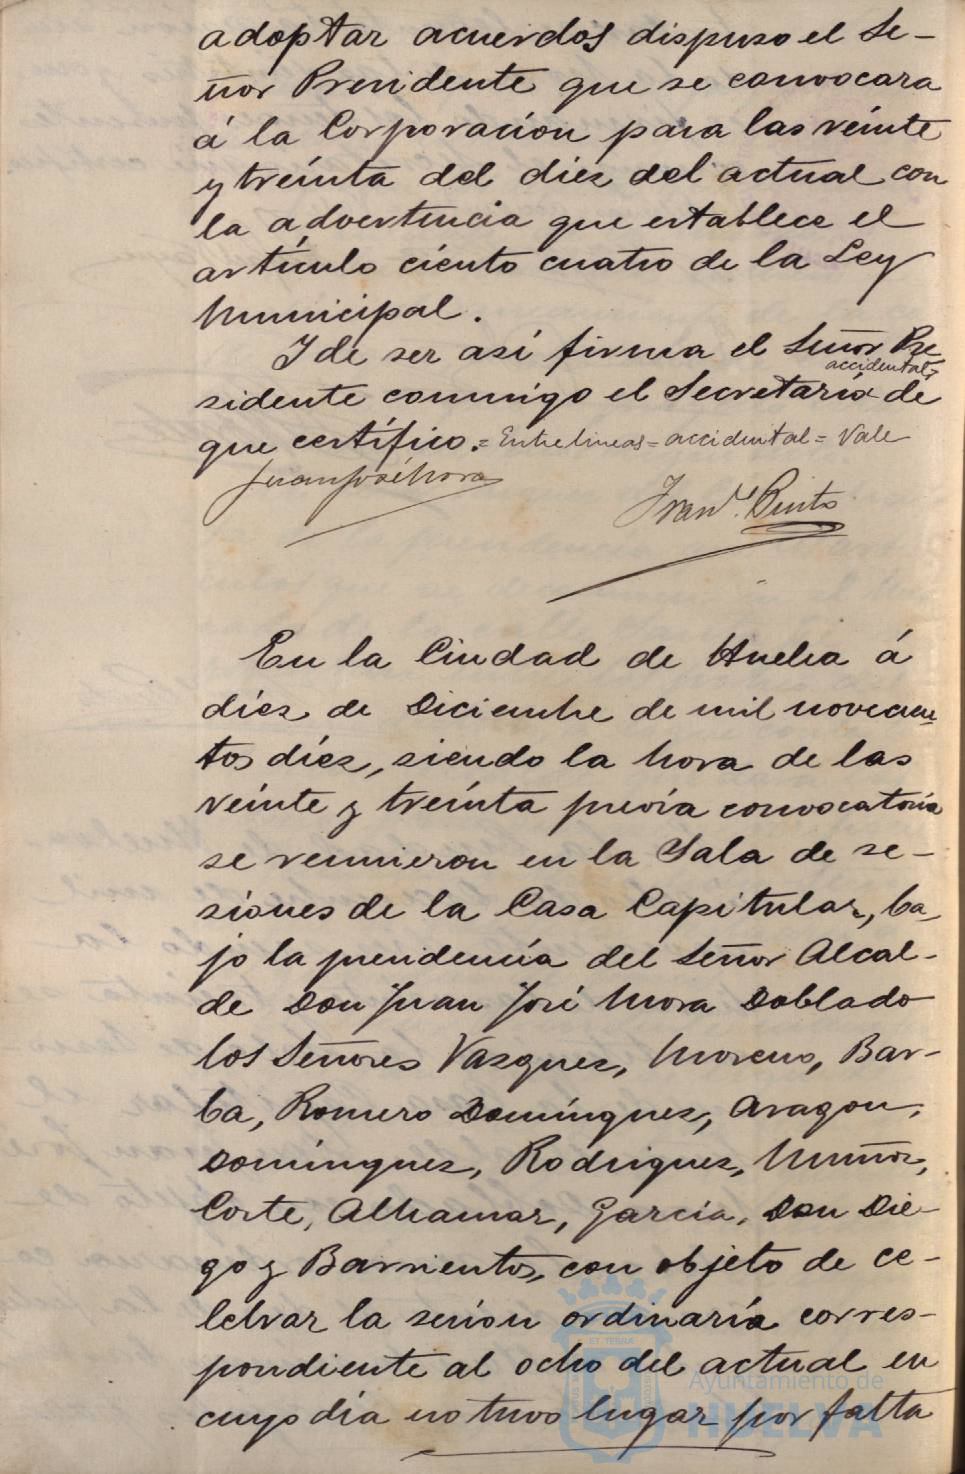 adoptar acuerdos dispuso el Se-
ñor Presidente que se convocara
á la Corporación para las veinte
y treinta del diez del actual con
la advertencia que establece el
artículo ciento cuatro de la Ley
Municipal.
Y de ser así firma el Señor Pre
accidental,
sidente conmigo el Secretario de
que certifico. = Entrelineas = accidental = Vale
Juan José Mora
En la Ciudad de Huelva á
diez de Diciembre de mil novecien
tos diez, siendo la hora de las
veinte y treinta previa convocatoria
se reunieron en la Sala de se-
siones de la Casa Capitular, ba
jo la presidencia del Señor Alcal-
de Don Juan José Mora Doblado
los Señores Vazquez, Moreno, Bar-
ba, Romero Domínguez, Aragon,
Domínguez, Rodriguez, Muñoz,
Corte, Alhamar, Garcia, Don Die-
go y Barrientos, con objeto de ce-
lebrar la sesion ordinaria corres-
pondiente al ocho del actual en
cuyo día no tuvo lugar por falta
ET TERRÆ
Ayuntamiento de
HUELVA